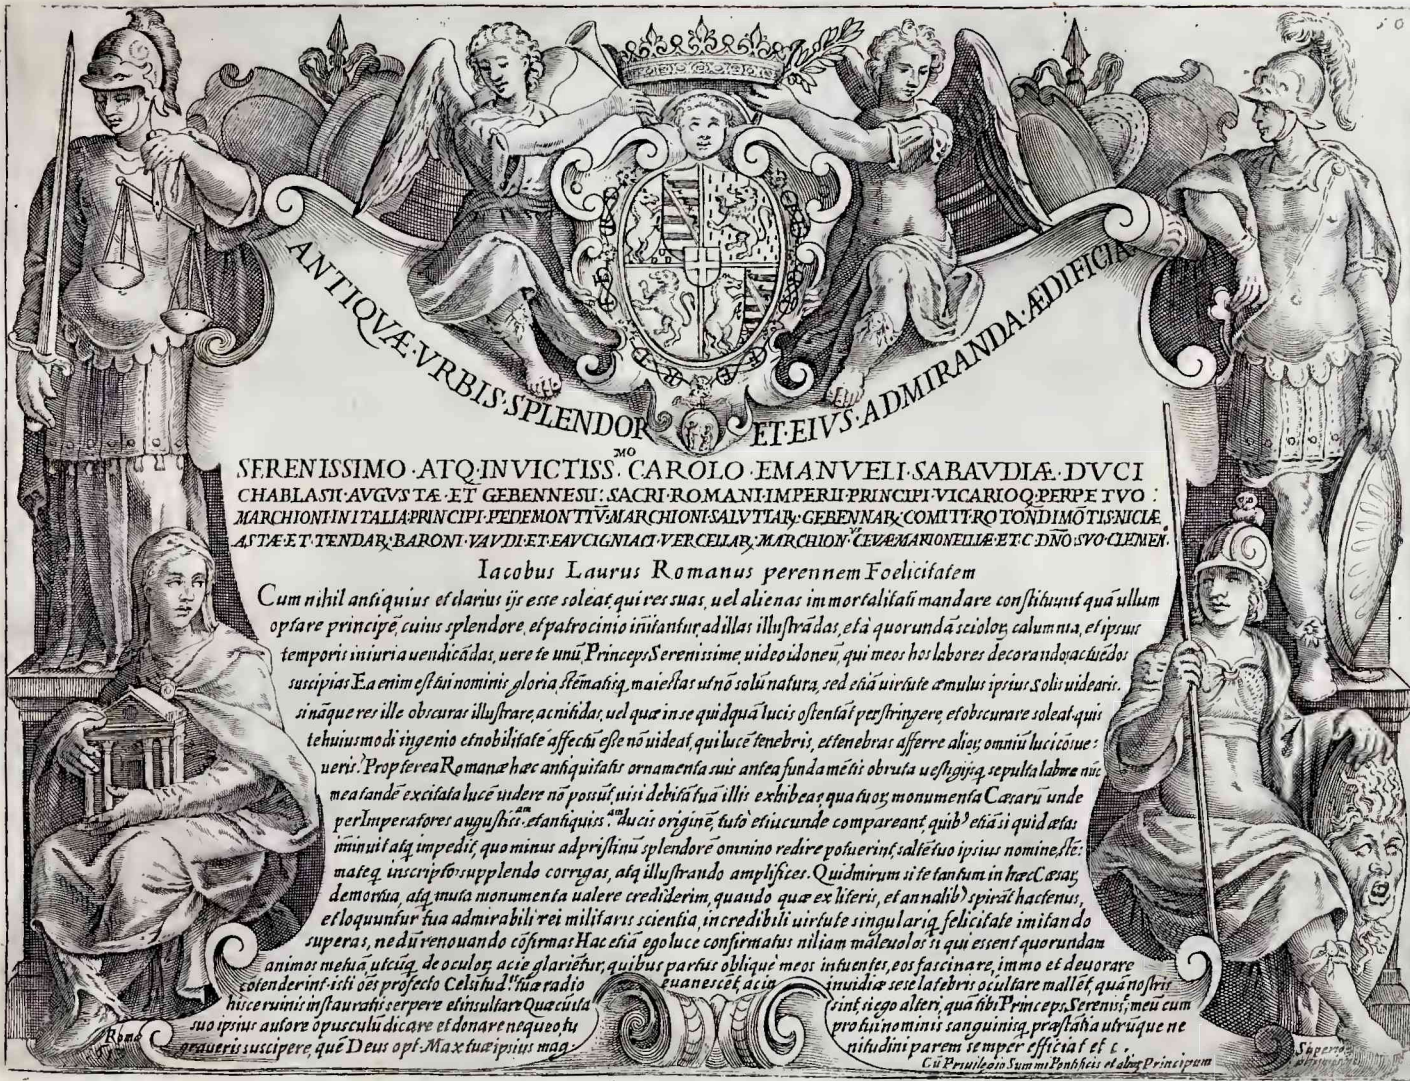 50
ANTIQVÆ·VRBIS·SPLENDOR ET·EIVS·ADMIRANDA·ÆDIFICIA
SERENISSIMO·ATQ·INVICTISS.MO CAROLO·EMANVELI·SABAVDIÆ·DVCI
CHABLASII·AVGVSTÆ·ET GEBENNESII: SACRI·ROMANI·IMPERII·PRINCIPI·VICARIOQ·PERPETVO:
MARCHIONI·IN ITALIA·PRINCIPI·PEDEMONTIŪ·MARCHIONI·SALVTIAꝜ·GEBENNAꝜ·COMITI·ROTONDIMŌTIS·NICIÆ
ASTÆ·ET·TENDAꝜ·BARONI·VAVDI·ET·FAVCIGNIACI·VERCELLAꝜ·MARCHION·CEVÆ MARIONELLIÆ·ET·C·DÑO·SVO·CLEMEN.
Iacobus Laurus Romanus perennem Foelicitatem
Cum nihil antiquius et clarius ijs esse soleat, qui res suas, uel alienas immortalitati mandare constituunt quā ullum
optare principē, cuius splendore, et patrocinio initantur, ad illas illustrādas, et à quorundā scioloꝝ calumnia, et ipsius
temporis iniuria uendicādas, uere te unū Princeps Serenissime, uideo idoneū, qui meos hos labores decorandos, ac tuēdos
suscipias Ea enim est tui nominis gloria, stēmatisq. maiestas ut nō solū natura, sed etiā uirtute æmulus ipsius Solis uidearis.
si nāque res ille obscuras illustrare, ac nitidas, uel quæ in se quidquā lucis ostentāt perstringere, et obscurare soleat quis
te huiusmodi ingenio et nobilitate affectū esse nō uideat, qui lucē tenebris, et tenebras afferre alioꝝ omniū luci cōsue:
ueris? Propterea Romanæ hæc antiquitatis ornamenta suis antea fundamētis obruta uestigijsq. sepulta labore nūc
mea tandē excitata lucē uidere nō possūt, nisi debitā tuā illis exhibeas, qua tuoꝝ monumenta Cæsarū unde
per Imperatores augustiss.am et antiquiss.am ducis originē, tuto et iucunde compareant, quib⁹ etiā si quid ætas
iminuit atq. impedit, quo minus ad pristinū splendorē omnino redire potuerint, saltē tuo ipsius nomine, stē:
mateq. inscripto supplendo corrigas, atq. illustrando amplifices. Quid mirum si te tantum in hæc Cæsaꝝ
demortua, atq. muta monumenta ualere crediderim, quando quæ ex literis, et annalib⁹ spirāt hactenus,
et loquuntur tua admirabili rei militaris scientia, incredibili uirtute singulariq. felicitate imitando
superas, nedū renouando cōfirmas Hac etiā ego luce confirmatus nil iam maleuolos si qui essent quorundam
animos metuā, utcūq. de oculoꝝ acie glariētur, quibus partus obliquè meos intuentes, eos fascinare, immo et deuorare
cōtenderint. isti oēs profecto Celsitud.nis tuæ radio euanescēt, ac in inuidiæ sese latebris ocultare mallēt, quā nostris
hisce ruinis instauratis serpere et insultare Quæ cū ita sint, si ego alteri, quā tibi Princeps Serenis.e meū cum
suo ipsius autore opusculū dicare et donare nequeo, tu pro tui nominis sanguinisq. præstātia utrūque ne
graueris suscipere, quē Deus opt. Max tuæ ipsius mag: nitudini parem semper efficiat et c.
Cū Priuilegio Summi Pontificis et alioꝝ Principum
Romæ
Superioꝝ